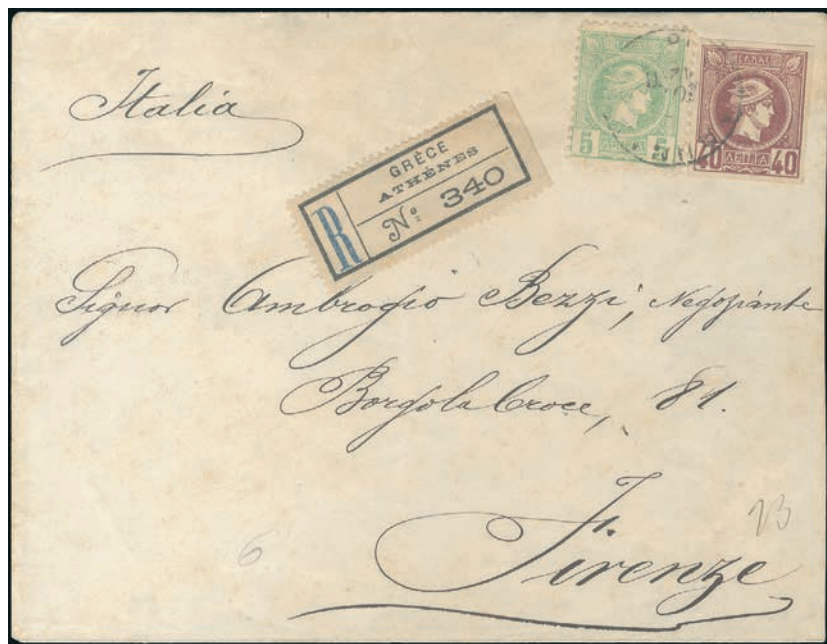 Italia
R
GRÈCE
ATHÈNES
Nº 340
ΕΛΛΑΣ
5 5
ΕΛΛΑΣ
40 ΛΕΠΤΑ 40
Signor Ambrogio Bezzi, Negoziante
Borgo la Croce, 81.
Firenze
23
6